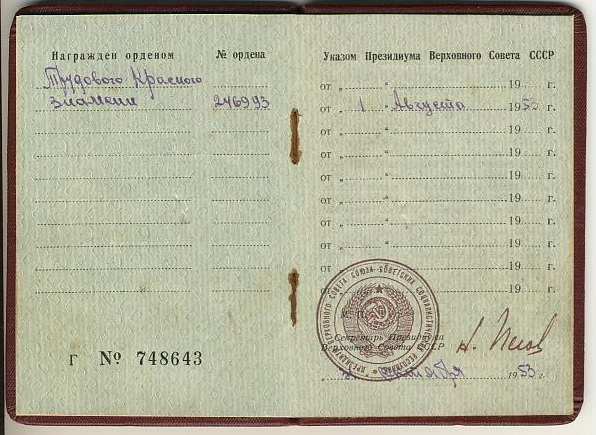 Награжден орденом № ордена
Трудового Красного
Знамени 246993
г № 748643
Указом Президиума Верховного Совета СССР
от „ “ 19 г.
от „ 1 “ Августа 1953 г.
от „ “ 19 г.
от „ “ 19 г.
от „ “ 19 г.
от „ “ 19 г.
от „ “ 19 г.
от „ “ 19 г.
от „ “ 19 г.
от „ “ 19 г.
ПРЕЗИДИУМ ВЕРХОВНОГО СОВЕТА СОЮЗА СОВЕТСКИХ СОЦИАЛИСТИЧЕСКИХ
Секретарь Президиума
Верховного Совета СССР
1953 г.